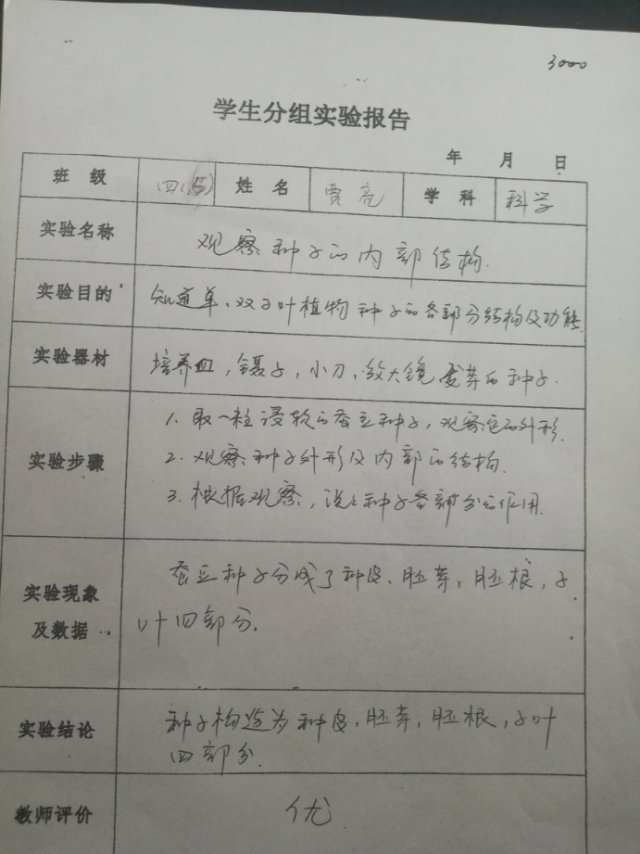 3000
学生分组实验报告
年 月 日
班 级 四(5) 姓 名 贾亮 学 科 科学
实验名称 观察种子的内部结构.
实验目的 知道单、双子叶植物种子的各部分结构及功能
实验器材 培养皿,镊子,小刀,放大镜 发芽的种子.
1. 取一粒浸软的蚕豆种子,观察它的外形.
实验步骤 2. 观察种子外形及内部的结构.
3. 根据观察,说说种子各部分的作用.
实验现象 蚕豆种子分成了种皮、胚芽,胚根,子
及数据 叶四部分.
实验结论 种子构造为种皮,胚芽,胚根,子叶
四部分.
教师评价 优